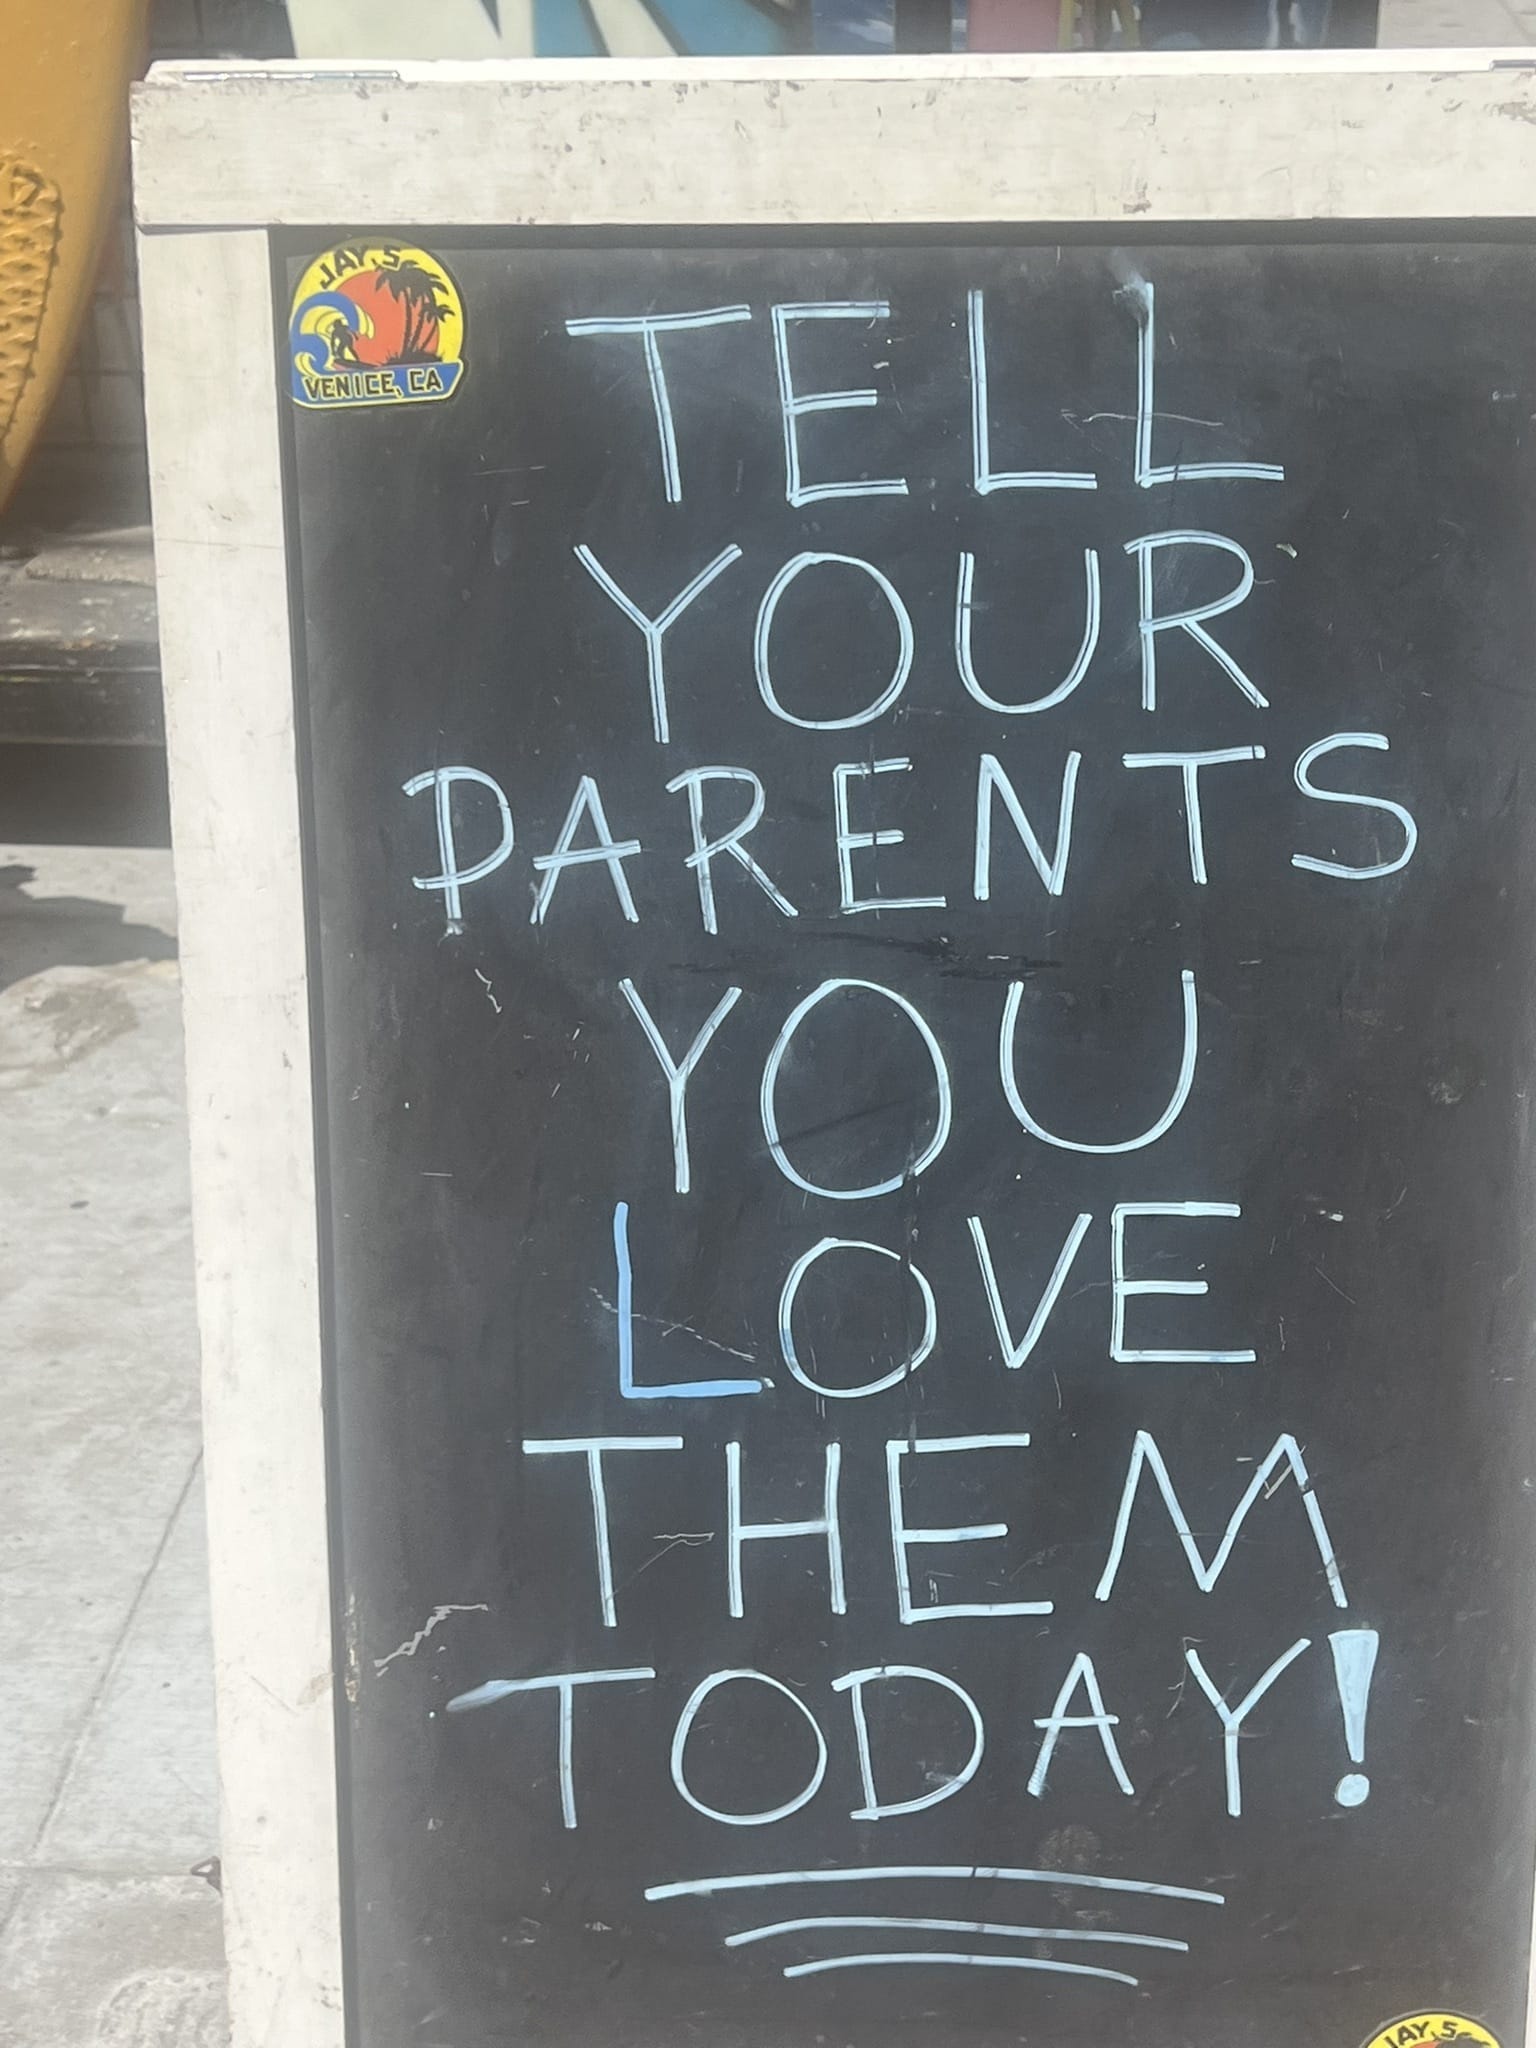 JAY,S
VENICE, CA
TELL
YOUR
PARENTS
YOU
LOVE
THEM
TODAY!
JAY,S